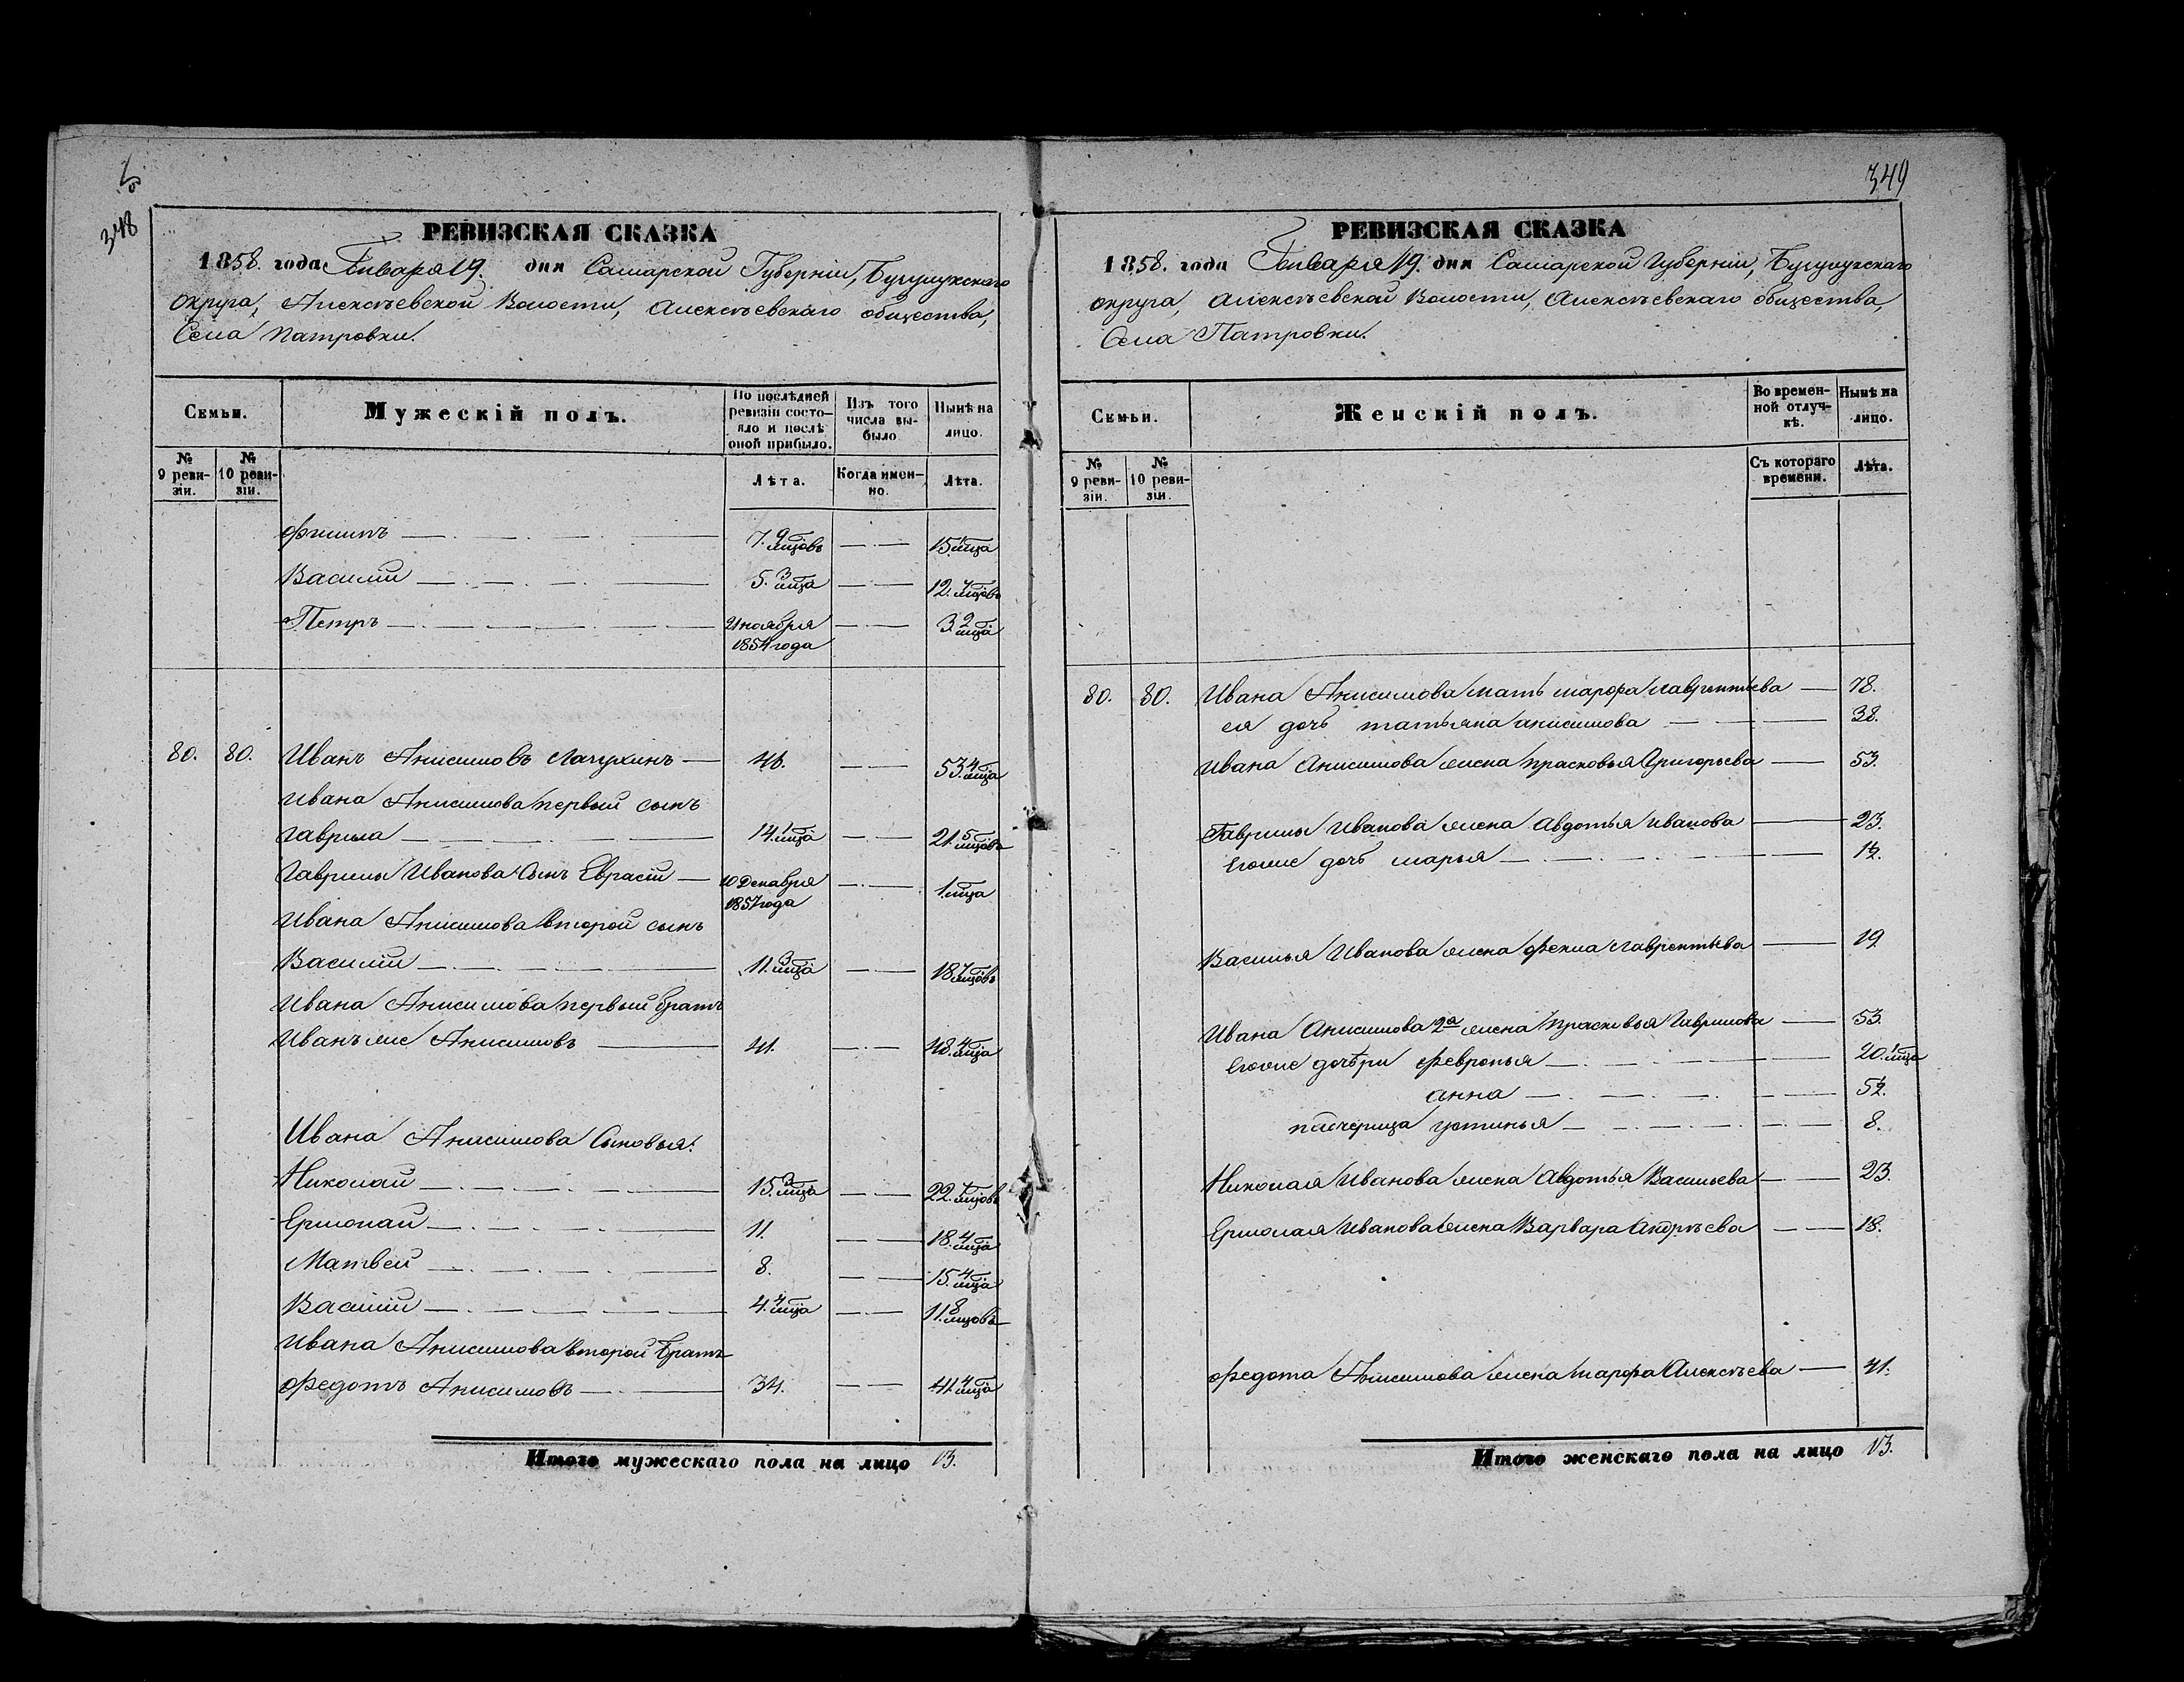 348
РЕВИЗСКАЯ СКАЗКА
1858. года Января 19. дня Самарской Губернiи, Бузулукскаго
округа, Алексѣевской Волости, Алексѣевскаго общества,
Села Патровки.
Семьи.
Мужескiй полъ.
По послѣдней ревизiи состояло и послѣ оной прибыло.
Изъ того числа выбыло
Нынѣ на лицо.
№ 9 ревизiи.
№ 10 ревизiи.
Лѣта.
Когда именно.
Лѣта.
Филипъ 7. 9 мцовъ 15. 1 мца
Василiй 5. 3 мца 12. 7 мцовъ
Петръ 21 ноября 1854 года 3. 2 мца
80. 80. Иванъ Анисимовъ 46. 53. 4 мца
Ивана Анисимова первый сынъ
Гаврила 14. 1 мца 21. 5 мцовъ
Гаврилы Иванова сынъ 10 Декабря 1857 года 1. мца
Ивана Анисимова второй сынъ
Василiй 11. 3 мца 18. 7 мцовъ
Ивана Анисимова первый братъ
Иванъ же Анисимовъ 41. 48. 4 мца
Ивана Анисимова Сыновья:
Николай 15. 3 мца 22. 7 мцовъ
Ермолай 11. 18. 4 мца
Матвей 8. 15. 4 мца
Василiй 4. 4 мца 11. 8 мцовъ
Ивана Анисимова второй братъ
Федотъ Анисимовъ 34. 41. 4 мца
Итого мужескаго пола на лицо 13.
349
РЕВИЗСКАЯ СКАЗКА
1858. года Января 19. дня Самарской Губернiи, Бузулукскаго
округа, Алексѣевской Волости, Алексѣевскаго общества,
Села Патровки.
Семьи.
Женскiй полъ.
Во временной отлучкѣ.
Нынѣ на лицо.
№ 9 ревизiи.
№ 10 ревизiи.
Съ котораго времени.
Лѣта.
80. 80. Ивана Анисимова мать марфа лаврентьева 78.
ея дочь татьяна анисимова 38.
Ивана Анисимова жена прасковья Григорьева 53.
Гаврилы Иванова жена Авдотья иванова 23.
Егоже дочь марья
Василья Иванова жена фекла лаврентьева 19
Ивана Анисимова 2а жена прасковья Гаврилова 53.
Егоже дочѣри Февронья 20. 1 мца
анна
падчерица устинья 8.
Николая Иванова жена Авдотья Васильева 23.
Ермолая Иванова жена Варвара Андрѣева 18.
Федота Анисимова жена марфа Алексѣева 41.
Итого женскаго пола на лицо 13.